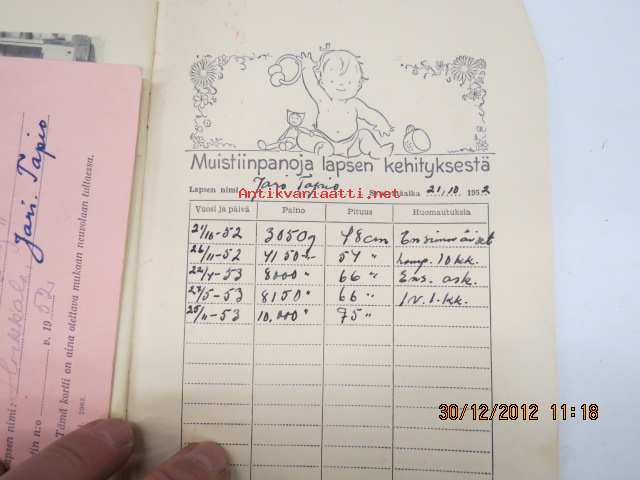 Muistiinpanoja lapsen kehityksestä
Lapsen nimi Jari Tapio Syntymäaika 21.10 1952
Antikvariaatti.net
Vuosi ja päivä Paino Pituus Huomautuksia
21/10-52 3050g 48cm Ensimmäiset
26/11-52 4150 54 " 10 kk.
22/4-53 8000 " 66 " Ens. ask.
27/5-53 8150 " 66 " 1 v. 1. kk.
25/11-53 10.000 " 75 "
Jari. Tapio
Tämä kortti on aina otettava mukaan neuvolaan tultaessa.
v. 1952
30/12/2012 11:18